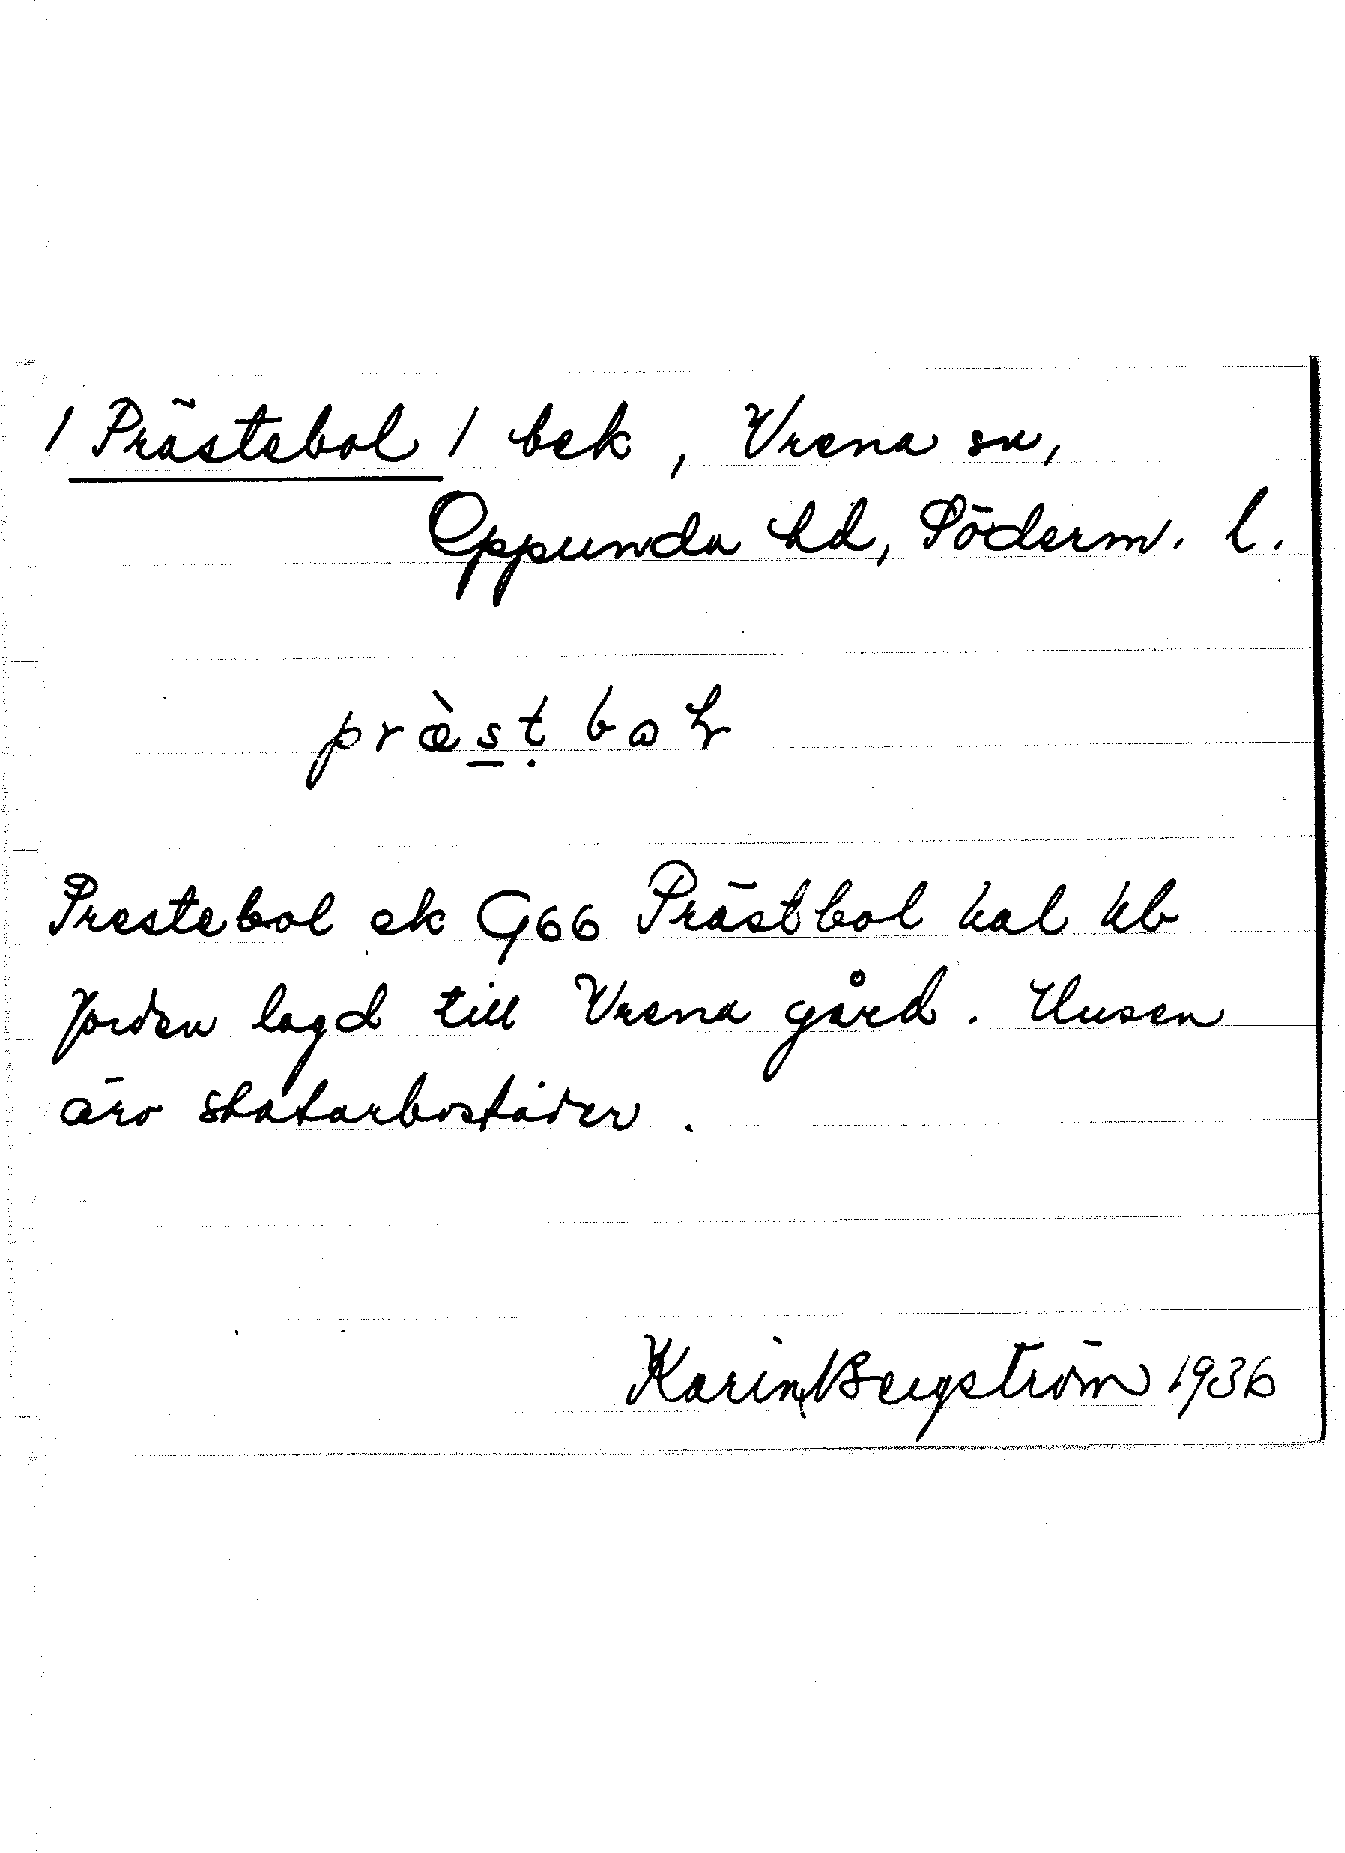 / Prästebol / bek, Vrena sn,
Oppunda hd, Söderm. l.
præ̀sṭboɫ
Prestebol ek G66 Prästbol hal kb
Jorden lagd till Vrena gård. Husen
äro statarbostäder.
Karin Bergström 1936